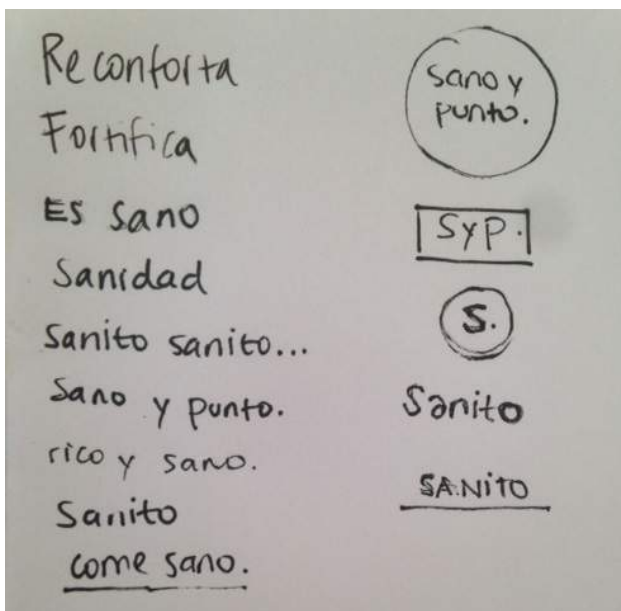 Reconforta
Fortifica
Es sano
Sanidad
Sanito sanito...
Sano y punto.
rico y sano.
Sanito
come sano.
Sano y
punto.
SYP.
S.
Sanito
SANiTO